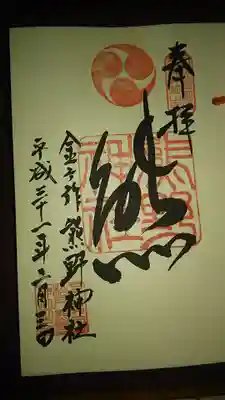 奉拝
熊
金ヶ作熊野神社
平成三十一年二月三日